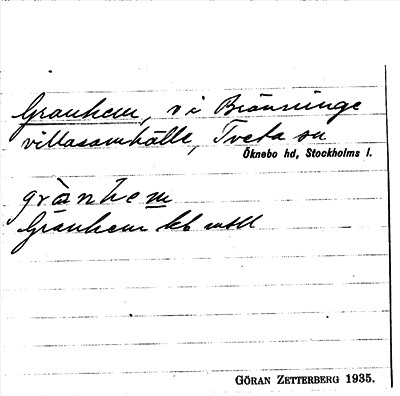 Granhem, vi Bränninge
villasamhälle, Tveta sn
Öknebo hd, Stockholms l.
grànhem
Granhem kt
GÖRAN ZETTERBERG 1935.